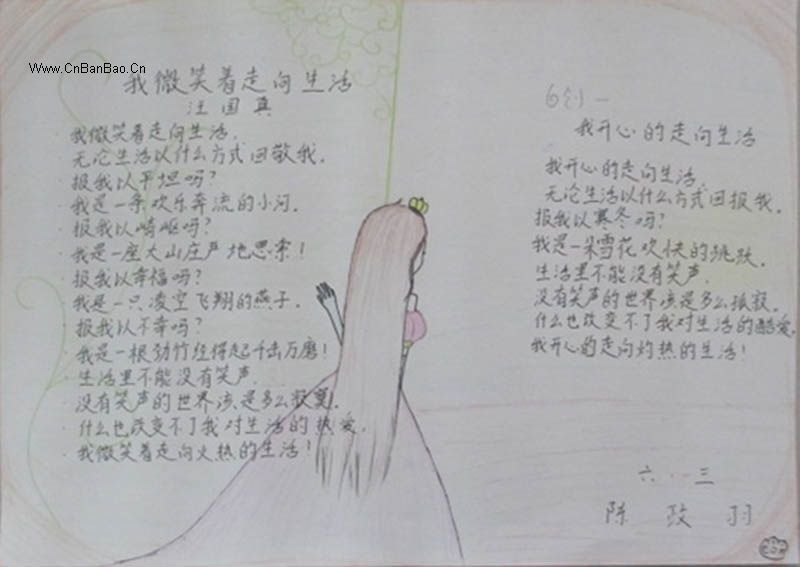 www.CnBanBao.Cn
我微笑着走向生活
汪国真
我微笑着走向生活,
无论生活以什么方式回敬我。
报我以平坦吗?
我是一条欢乐奔流的小河。
报我以崎岖吗?
我是一座大山庄严地思索!
报我以幸福吗?
我是一只凌空飞翔的燕子。
报我以不幸吗?
我是一根劲竹经得起千击万磨!
生活里不能没有笑声,
没有笑声的世界该是多么寂寞。
什么也改变不了我对生活的热爱,
我微笑着走向火热的生活!
我开心的走向生活
我开心的走向生活,
无论生活以什么方式回报我。
报我以寒冬吗?
我是一朵雪花欢快的跳跃。
生活里不能没有笑声,
没有笑声的世界该是多么孤寂。
什么也改变不了我对生活的酷爱,
我开心的走向灼热的生活!
六·三
陈政羽